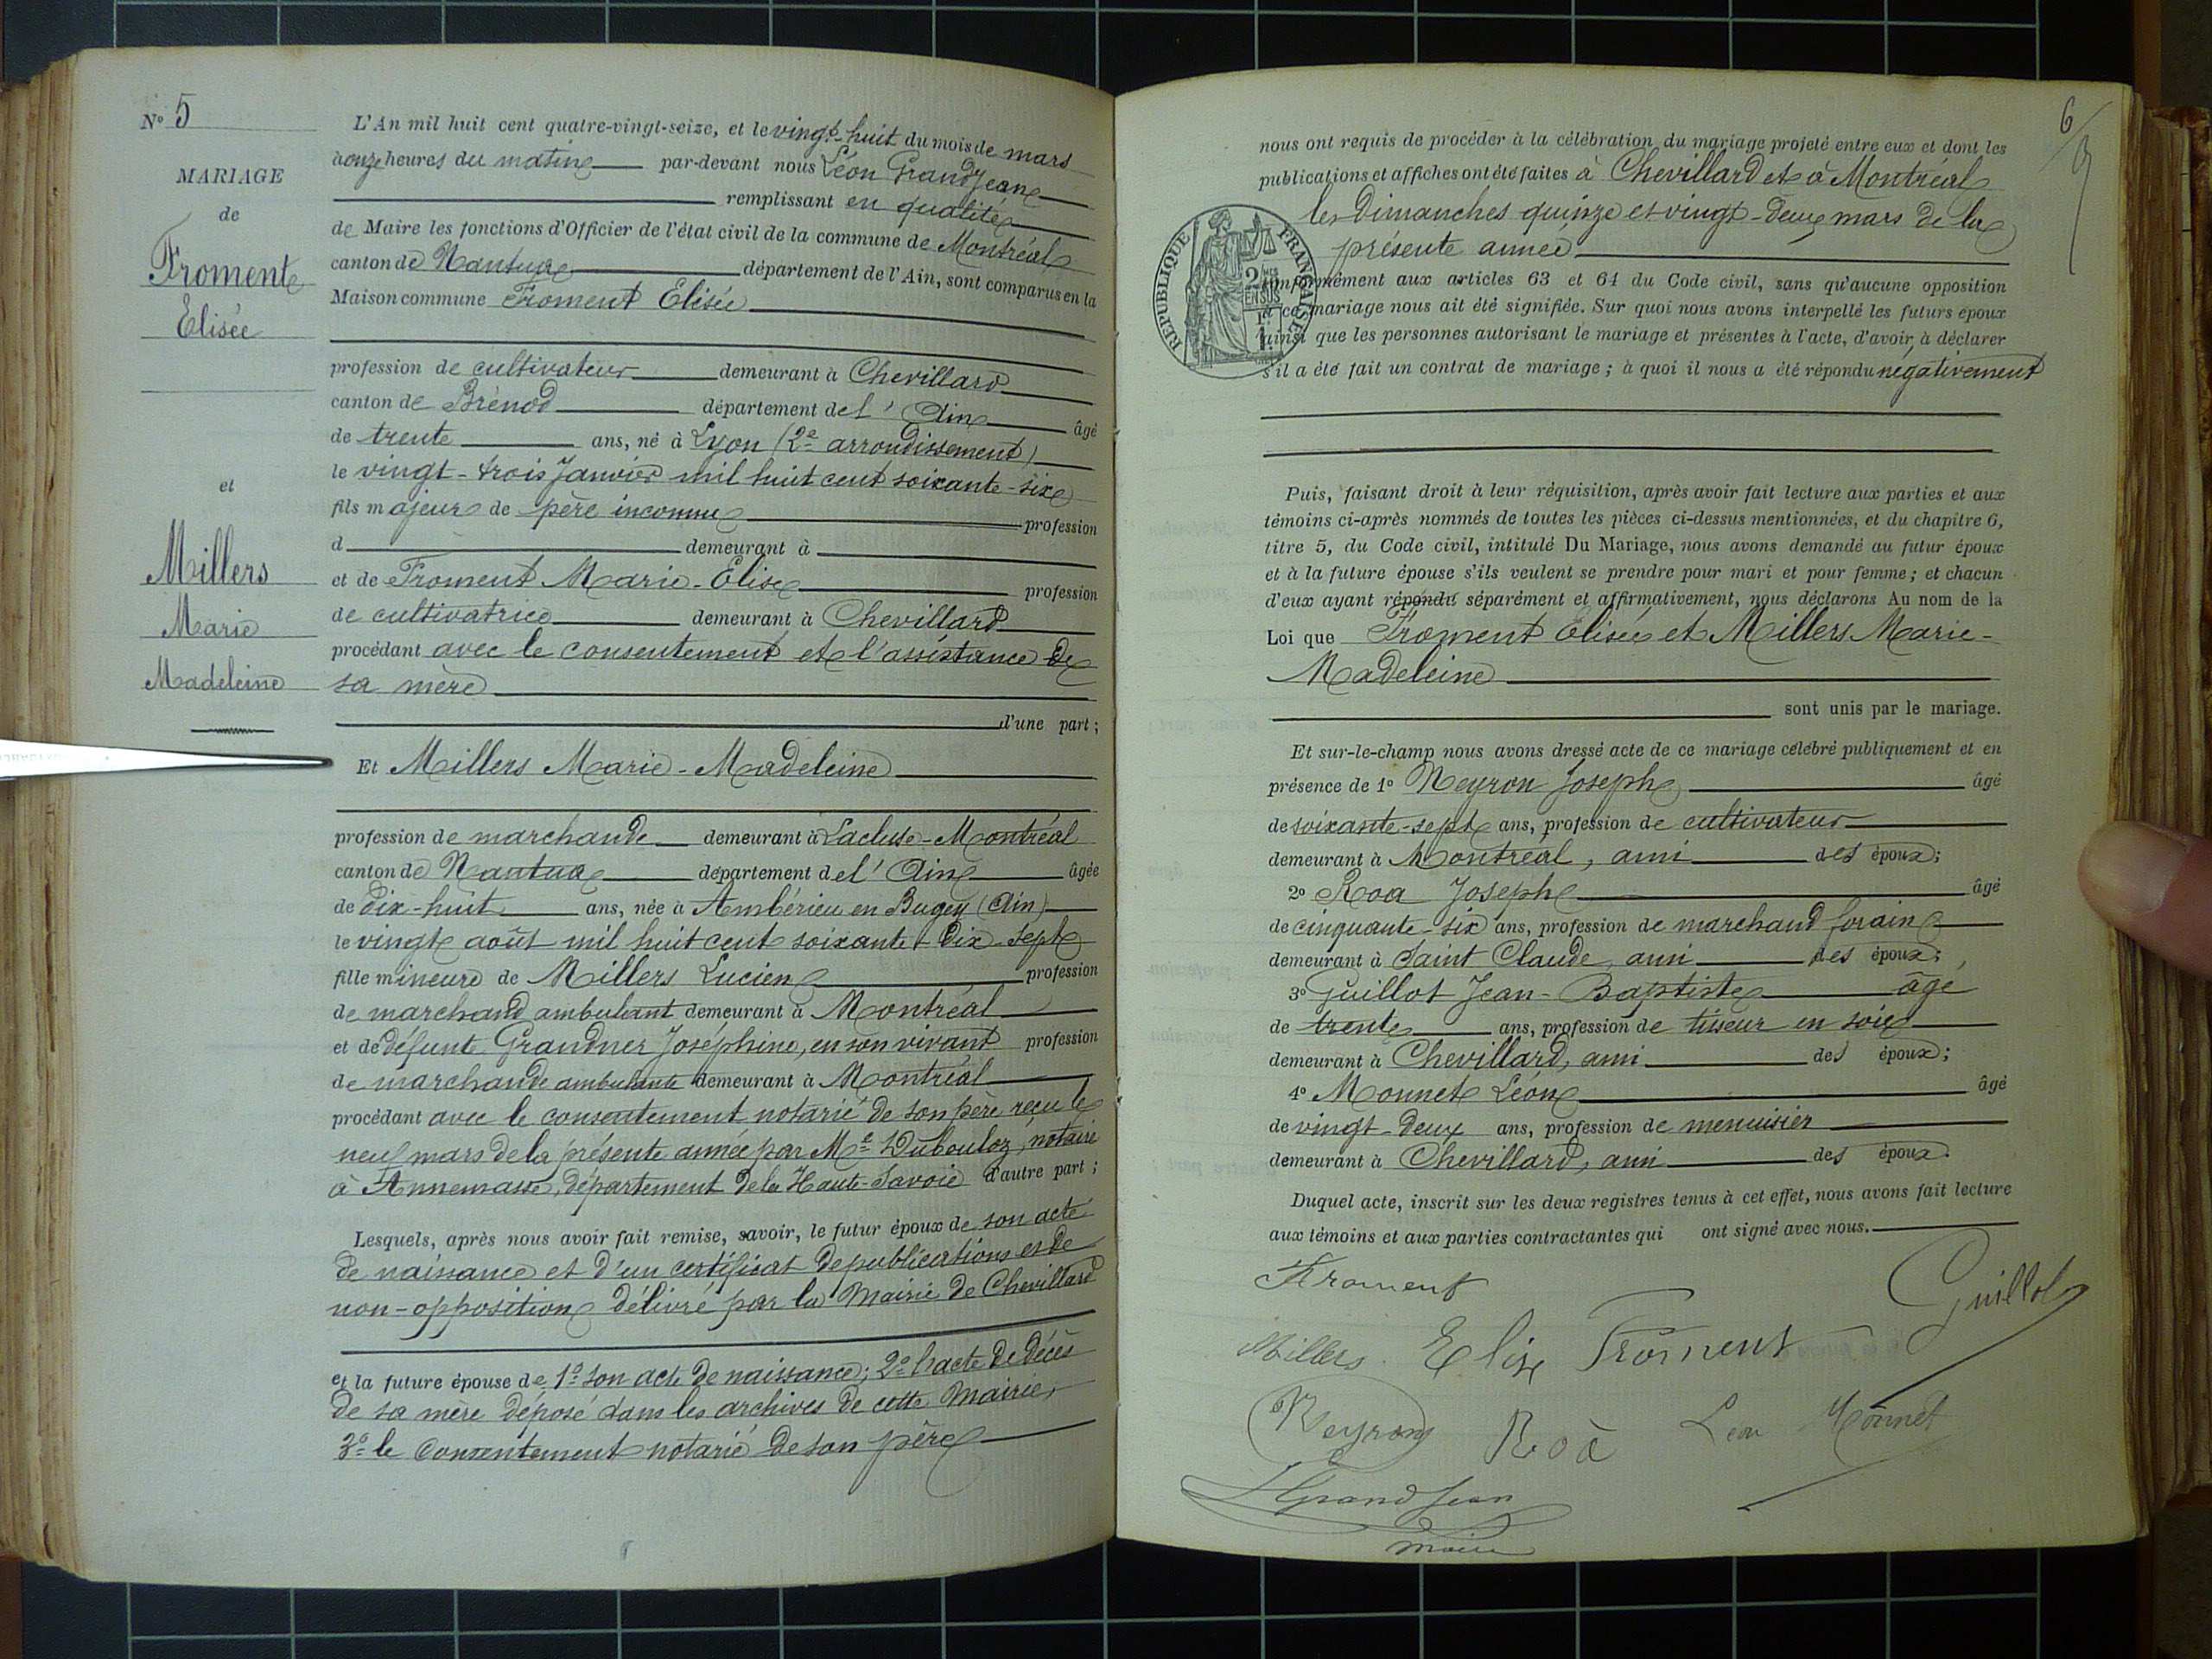 N° 5
MARIAGE
de
Froment
Elisée
et
Millers
Marie
Madeleine
L'An mil huit cent quatre-vingt-seize, et le vingt-huit du mois de mars
à onze heures du matin par-devant nous Léon Grandjean
remplissant en qualité
de Maire les fonctions d'Officier de l'état civil de la commune de Montréal
canton de Nantua département de l'Ain, sont comparus en la
Maison commune Froment Elisée
profession de cultivateur demeurant à Chevillard
canton de Brénod département de l'Ain âgé
de trente ans, né à Lyon (2e arrondissement)
le vingt-trois Janvier mil huit cent soixante-six
fils majeur de père inconnu profession
d demeurant à
et de Froment Marie-Elise profession
de cultivatrice demeurant à Chevillard
procédant avec le consentement et l'assistance de
sa mère
d'une part ;
Et Millers Marie-Madeleine
profession de marchande demeurant à Lacluse-Montréal
canton de Nantua département de l'Ain âgée
de dix-huit ans, née à Ambérieu en Bugey (Ain)
le vingt août mil huit cent soixante-dix-sept
fille mineure de Millers Lucien profession
de marchand ambulant demeurant à Montréal
et de défunte Grandner Joséphine, en son vivant profession
de marchande ambulante demeurant à Montréal
procédant avec le consentement notarié de son père reçu le
neuf mars de la présente année par Me Dubouloz, notaire
à Annemasse, département de la Haute-Savoie d'autre part ;
Lesquels, après nous avoir fait remise, savoir, le futur époux de son acte
de naissance et d'un certificat de publications et de
non-opposition délivré par la Mairie de Chevillard
et la future épouse de 1° son acte de naissance; 2° l'acte de décès
de sa mère déposé dans les archives de cette Mairie,
3° le consentement notarié de son père
6
nous ont requis de procéder à la célébration du mariage projeté entre eux et dont les
publications et affiches ont été faites à Chevillard et à Montréal
les Dimanches quinze et vingt-deux mars de la
présente année
conformément aux articles 63 et 64 du Code civil, sans qu'aucune opposition
à ce mariage nous ait été signifiée. Sur quoi nous avons interpellé les futurs époux
ainsi que les personnes autorisant le mariage et présentes à l'acte, d'avoir à déclarer
s'il a été fait un contrat de mariage ; à quoi il nous a été répondu négativement
REPUBLIQUE FRANÇAISE
Puis, faisant droit à leur réquisition, après avoir fait lecture aux parties et aux
témoins ci-après nommés de toutes les pièces ci-dessus mentionnées, et du chapitre 6,
titre 5, du Code civil, intitulé Du Mariage, nous avons demandé au futur époux
et à la future épouse s'ils veulent se prendre pour mari et pour femme ; et chacun
d'eux ayant répondu séparément et affirmativement, nous déclarons Au nom de la
Loi que Froment Elisée et Millers Marie-
Madeleine
sont unis par le mariage.
Et sur-le-champ nous avons dressé acte de ce mariage célébré publiquement et en
présence de 1° Neyron Joseph âgé
de soixante-sept ans, profession de cultivateur
demeurant à Montréal, ami des époux ;
2° Roa Joseph âgé
de cinquante-six ans, profession de marchand forain
demeurant à Saint Claude, ami des époux ;
3° Guillot Jean-Baptiste âgé
de trente ans, profession de tisseur en soie
demeurant à Chevillard, ami des époux ;
4° Monnet Léon âgé
de vingt-deux ans, profession de menuisier
demeurant à Chevillard, ami des époux.
Duquel acte, inscrit sur les deux registres tenus à cet effet, nous avons fait lecture
aux témoins et aux parties contractantes qui ont signé avec nous.
Froment
Guillot
Millers Elise Froment
Neyron Roà Léon Monnet
LGrandjean
maire